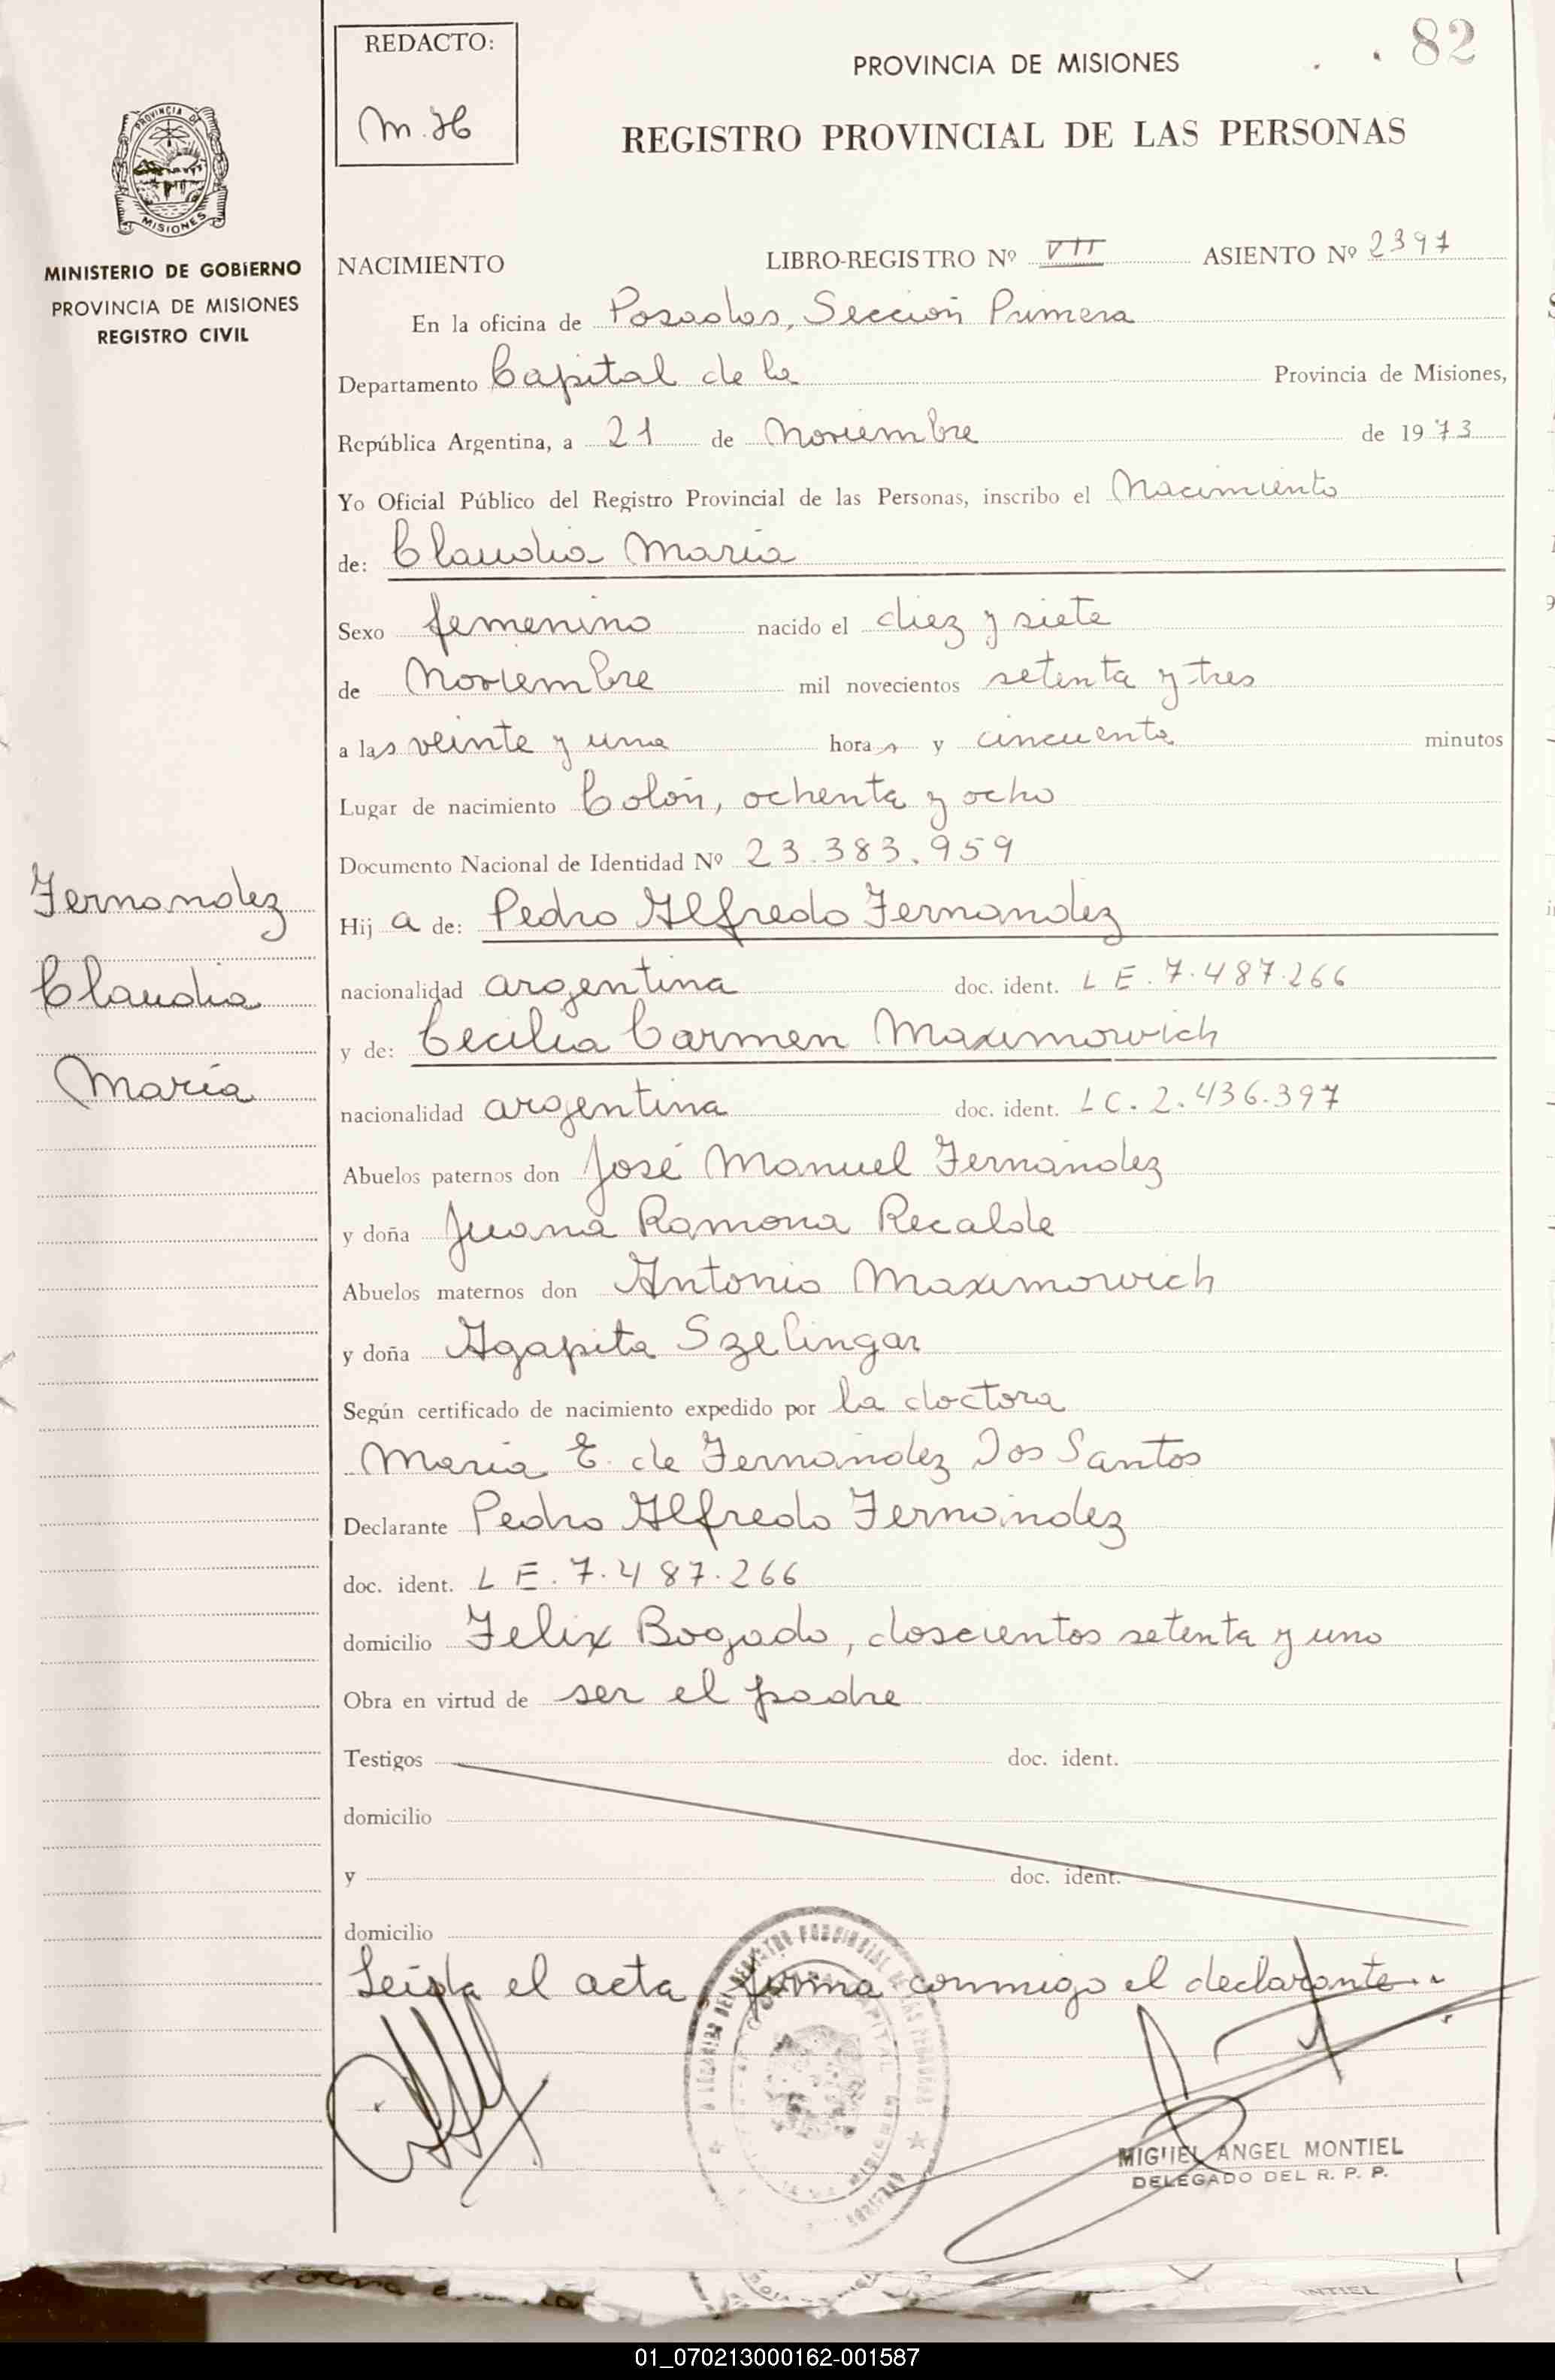 REDACTO:
M.H
PROVINCIA DE MISIONES
82
REGISTRO PROVINCIAL DE LAS PERSONAS
PROVINCIA DE
MISIONES
MINISTERIO DE GOBIERNO
PROVINCIA DE MISIONES
REGISTRO CIVIL
NACIMIENTO LIBRO-REGISTRO Nº VII ASIENTO Nº 2397
En la oficina de Posadas, Sección Primera
Departamento Capital de la Provincia de Misiones,
República Argentina, a 21 de Noviembre de 1973
Yo Oficial Público del Registro Provincial de las Personas, inscribo el Nacimiento
de: Claudia María
Sexo femenino nacido el diez y siete
de Noviembre mil novecientos setenta y tres
a las veinte y una horas y cincuenta minutos
Lugar de nacimiento Colón, ochenta y ocho
Documento Nacional de Identidad Nº 23.383.959
Hija de: Pedro Alfredo Fernandez
nacionalidad argentina doc. ident. L E. 7.487.266
y de: Cecilia Carmen Maximowich
nacionalidad argentina doc. ident. L C. 2.436.397
Abuelos paternos don José Manuel Fernández
y doña Juana Ramona Recalde
Abuelos maternos don Antonio Maximowich
y doña Agapita Szelingar
Según certificado de nacimiento expedido por la doctora
María E. de Fernández Dos Santos
Declarante Pedro Alfredo Fernández
doc. ident. L E. 7.487.266
domicilio Felix Bogado, doscientos setenta y uno
Obra en virtud de ser el padre
Testigos doc. ident.
domicilio
y doc. ident.
domicilio
Leída el acta, firma conmigo el declarante..
Fernandez
Claudia
María
MIGUEL ANGEL MONTIEL
DELEGADO DEL R. P. P.
NTIEL
01_070213000162-001587